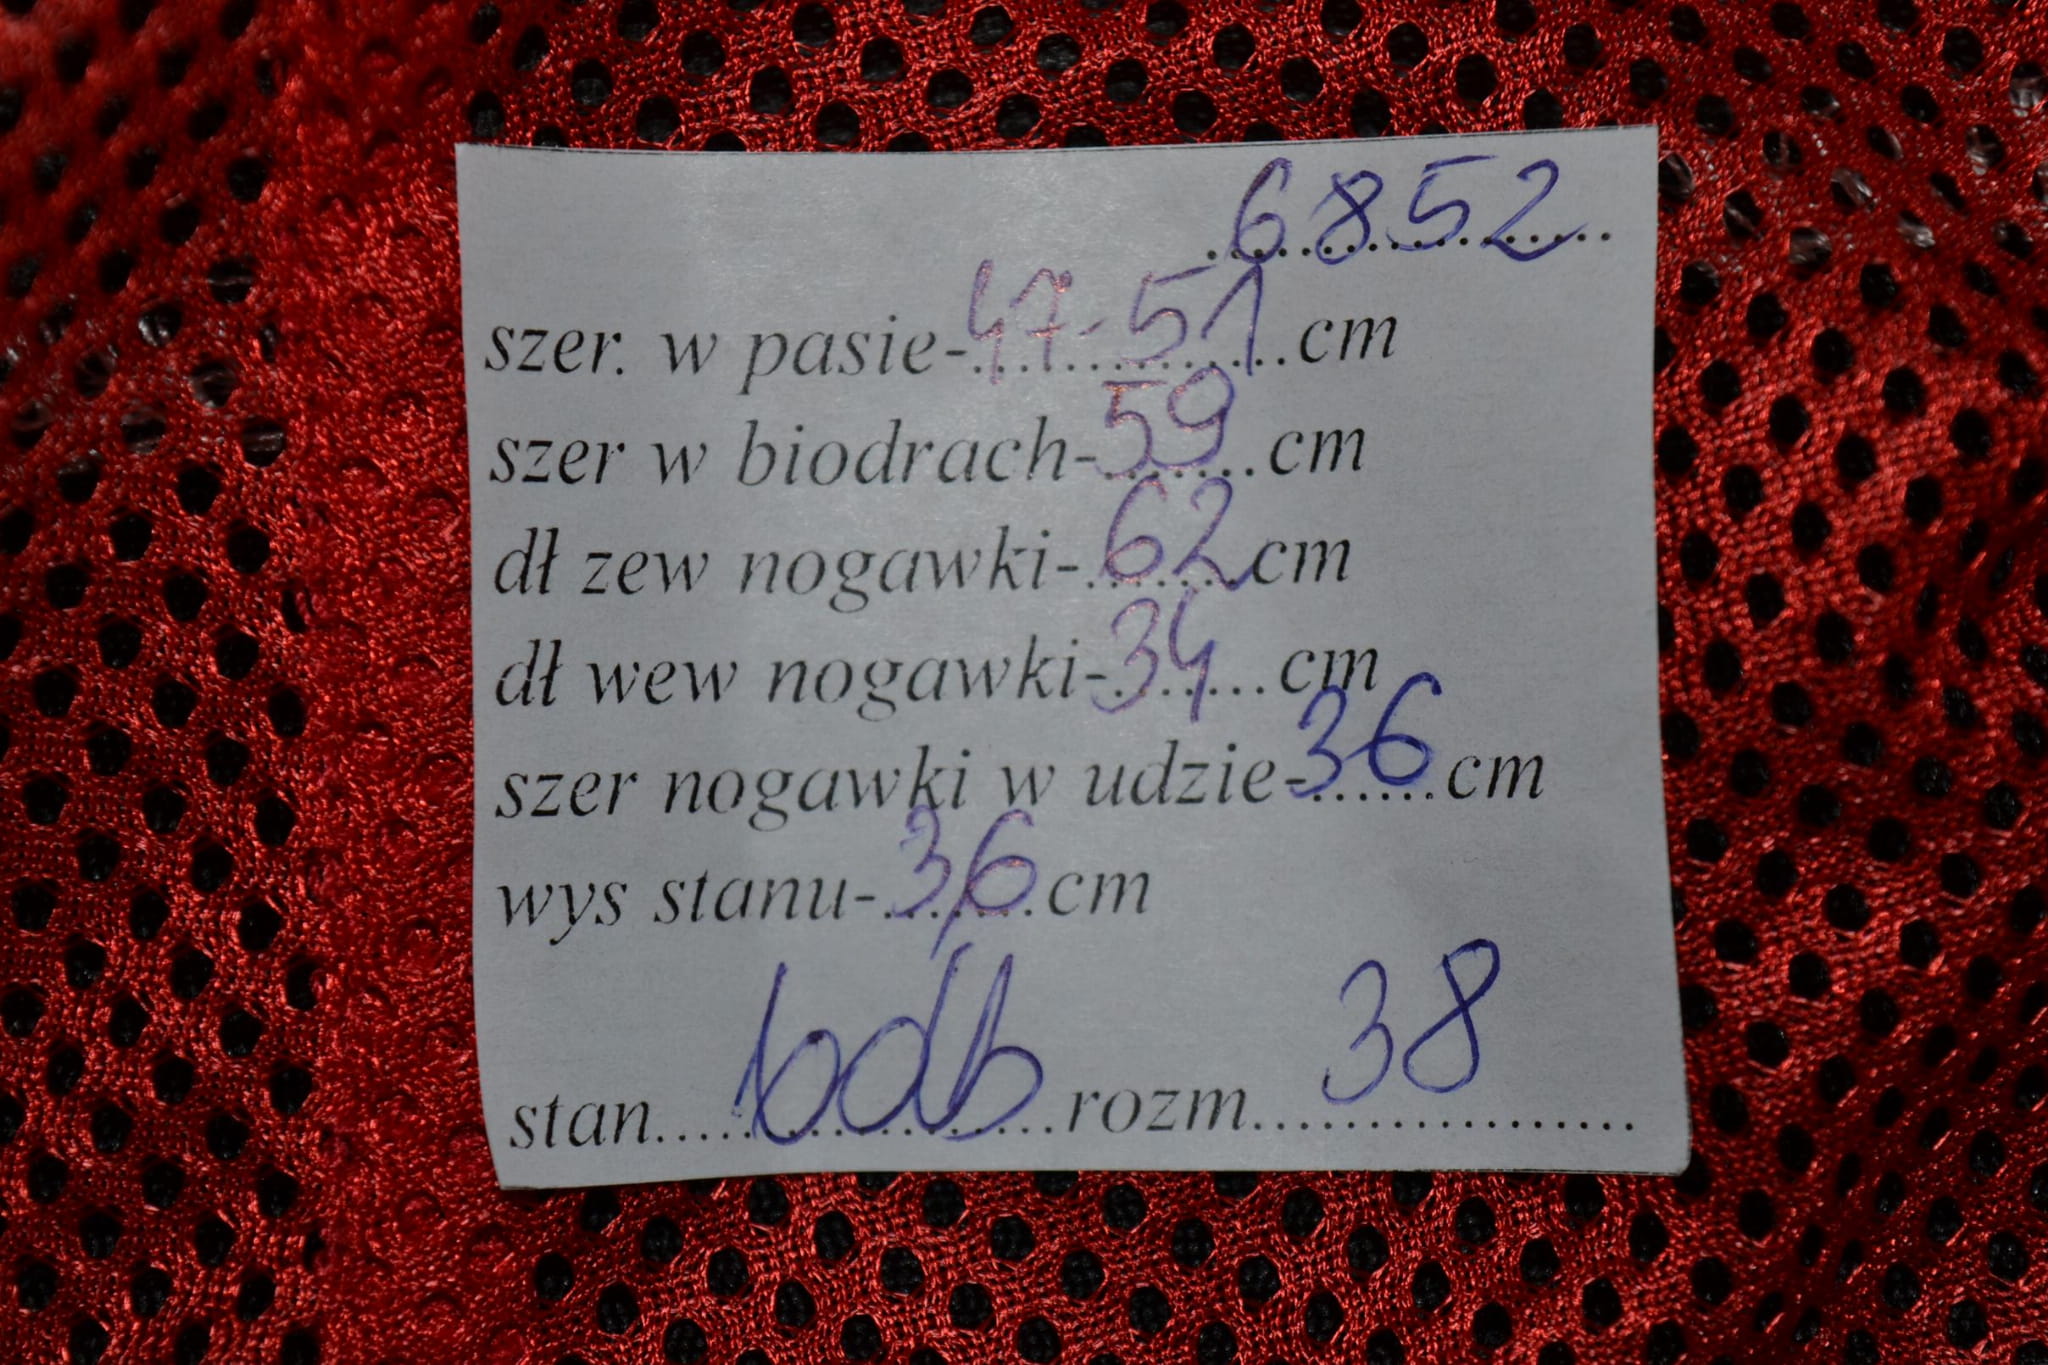 6852
szer. w pasie-47-51 cm
szer w biodrach-59 cm
dł zew nogawki-62 cm
dł wew nogawki-34 cm
szer nogawki w udzie-36 cm
wys stanu-36 cm
stan bdb rozm 38